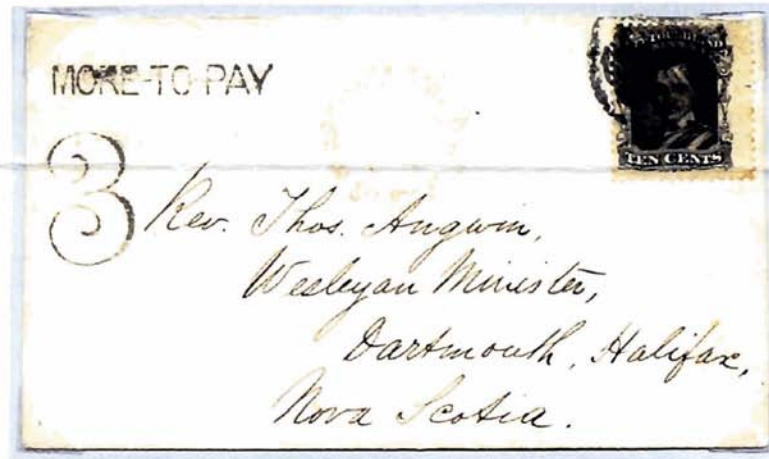 MORE-TO-PAY
TEN CENTS
3
Rev. Thos. Angwin,
Wesleyan Minister,
Dartmouth, Halifax,
Nova Scotia.